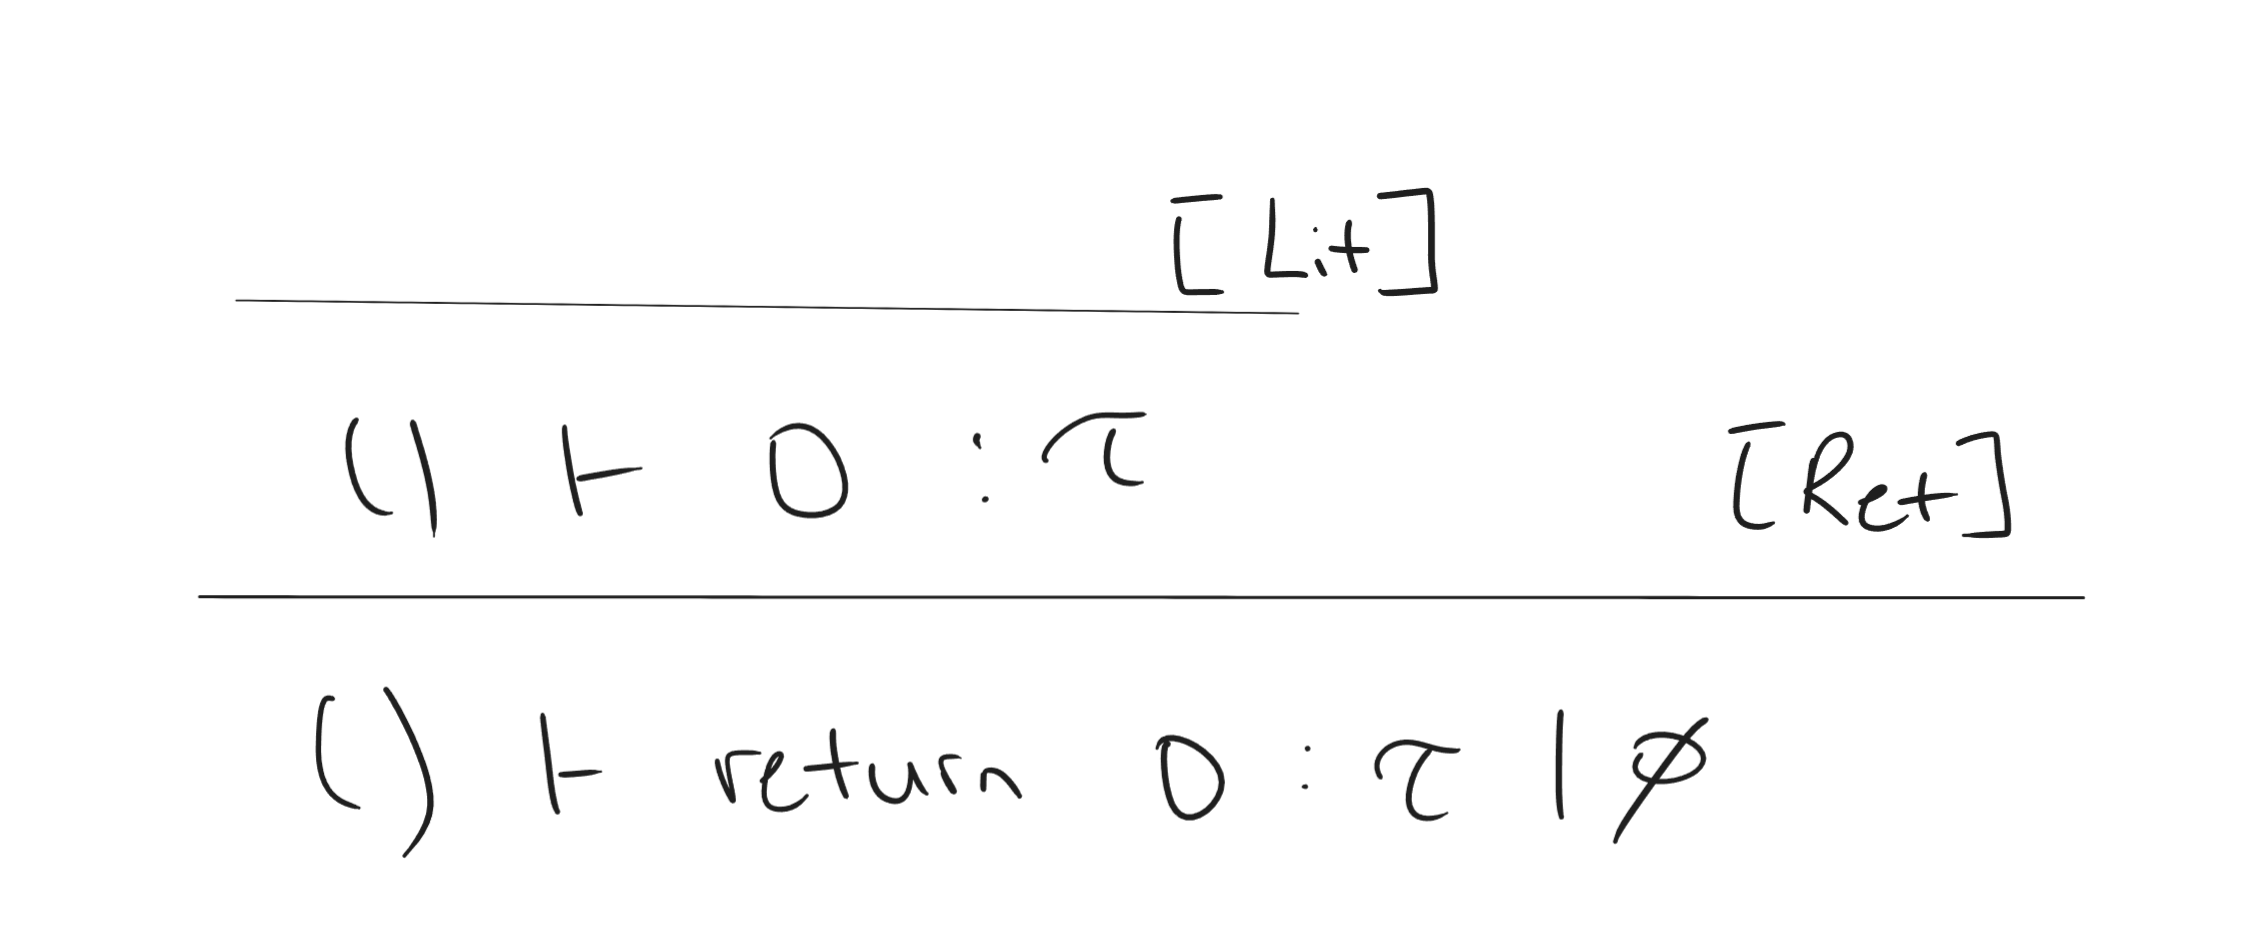 [Lit]
() ⊢ 0 : τ
[Ret]
() ⊢ return 0 : τ | ∅